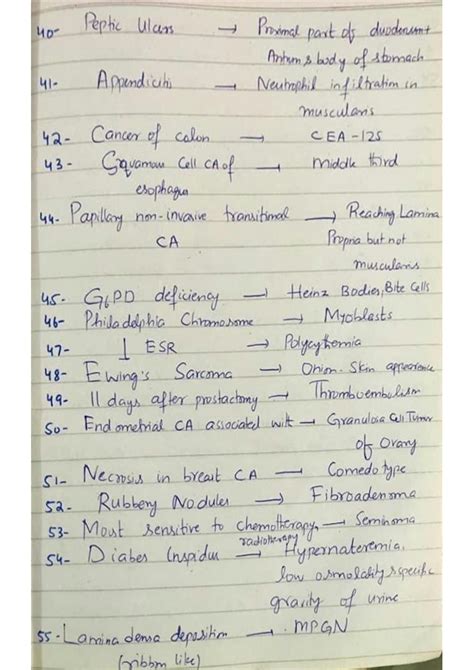 40- Peptic Ulcers → Proximal part of duodenum +
Antrum & body of stomach
41- Appendicitis → Neutrophil infiltration in
muscularis
42- Cancer of colon → CEA-125
43- Squamous Cell CA of → Middle third
esophagus
44- Papillary non-invasive transitional → Reaching Lamina
CA Propria but not
muscularis
45- G6PD deficiency → Heinz Bodies, Bite Cells
46- Philadelphia Chromosome → Myoblasts
47- ↓ ESR → Polycythemia
48- Ewing's Sarcoma → Onion-Skin appearence
49- 11 days after prostactomy → Thromboembolism
50- Endometrial CA associated with → Granulosa Cell Tumor
of Ovary
51- Necrosis in breast CA → Comedo type
52- Rubbery Nodules → Fibroadenoma
53- Most sensitive to chemotherapy, → Seminoma
radiotherapy
54- Diabes Inspidus → Hypernateremia,
low osmolality specific
gravity of urine
55- Lamina densa deposition → MPGN
(ribbon like)